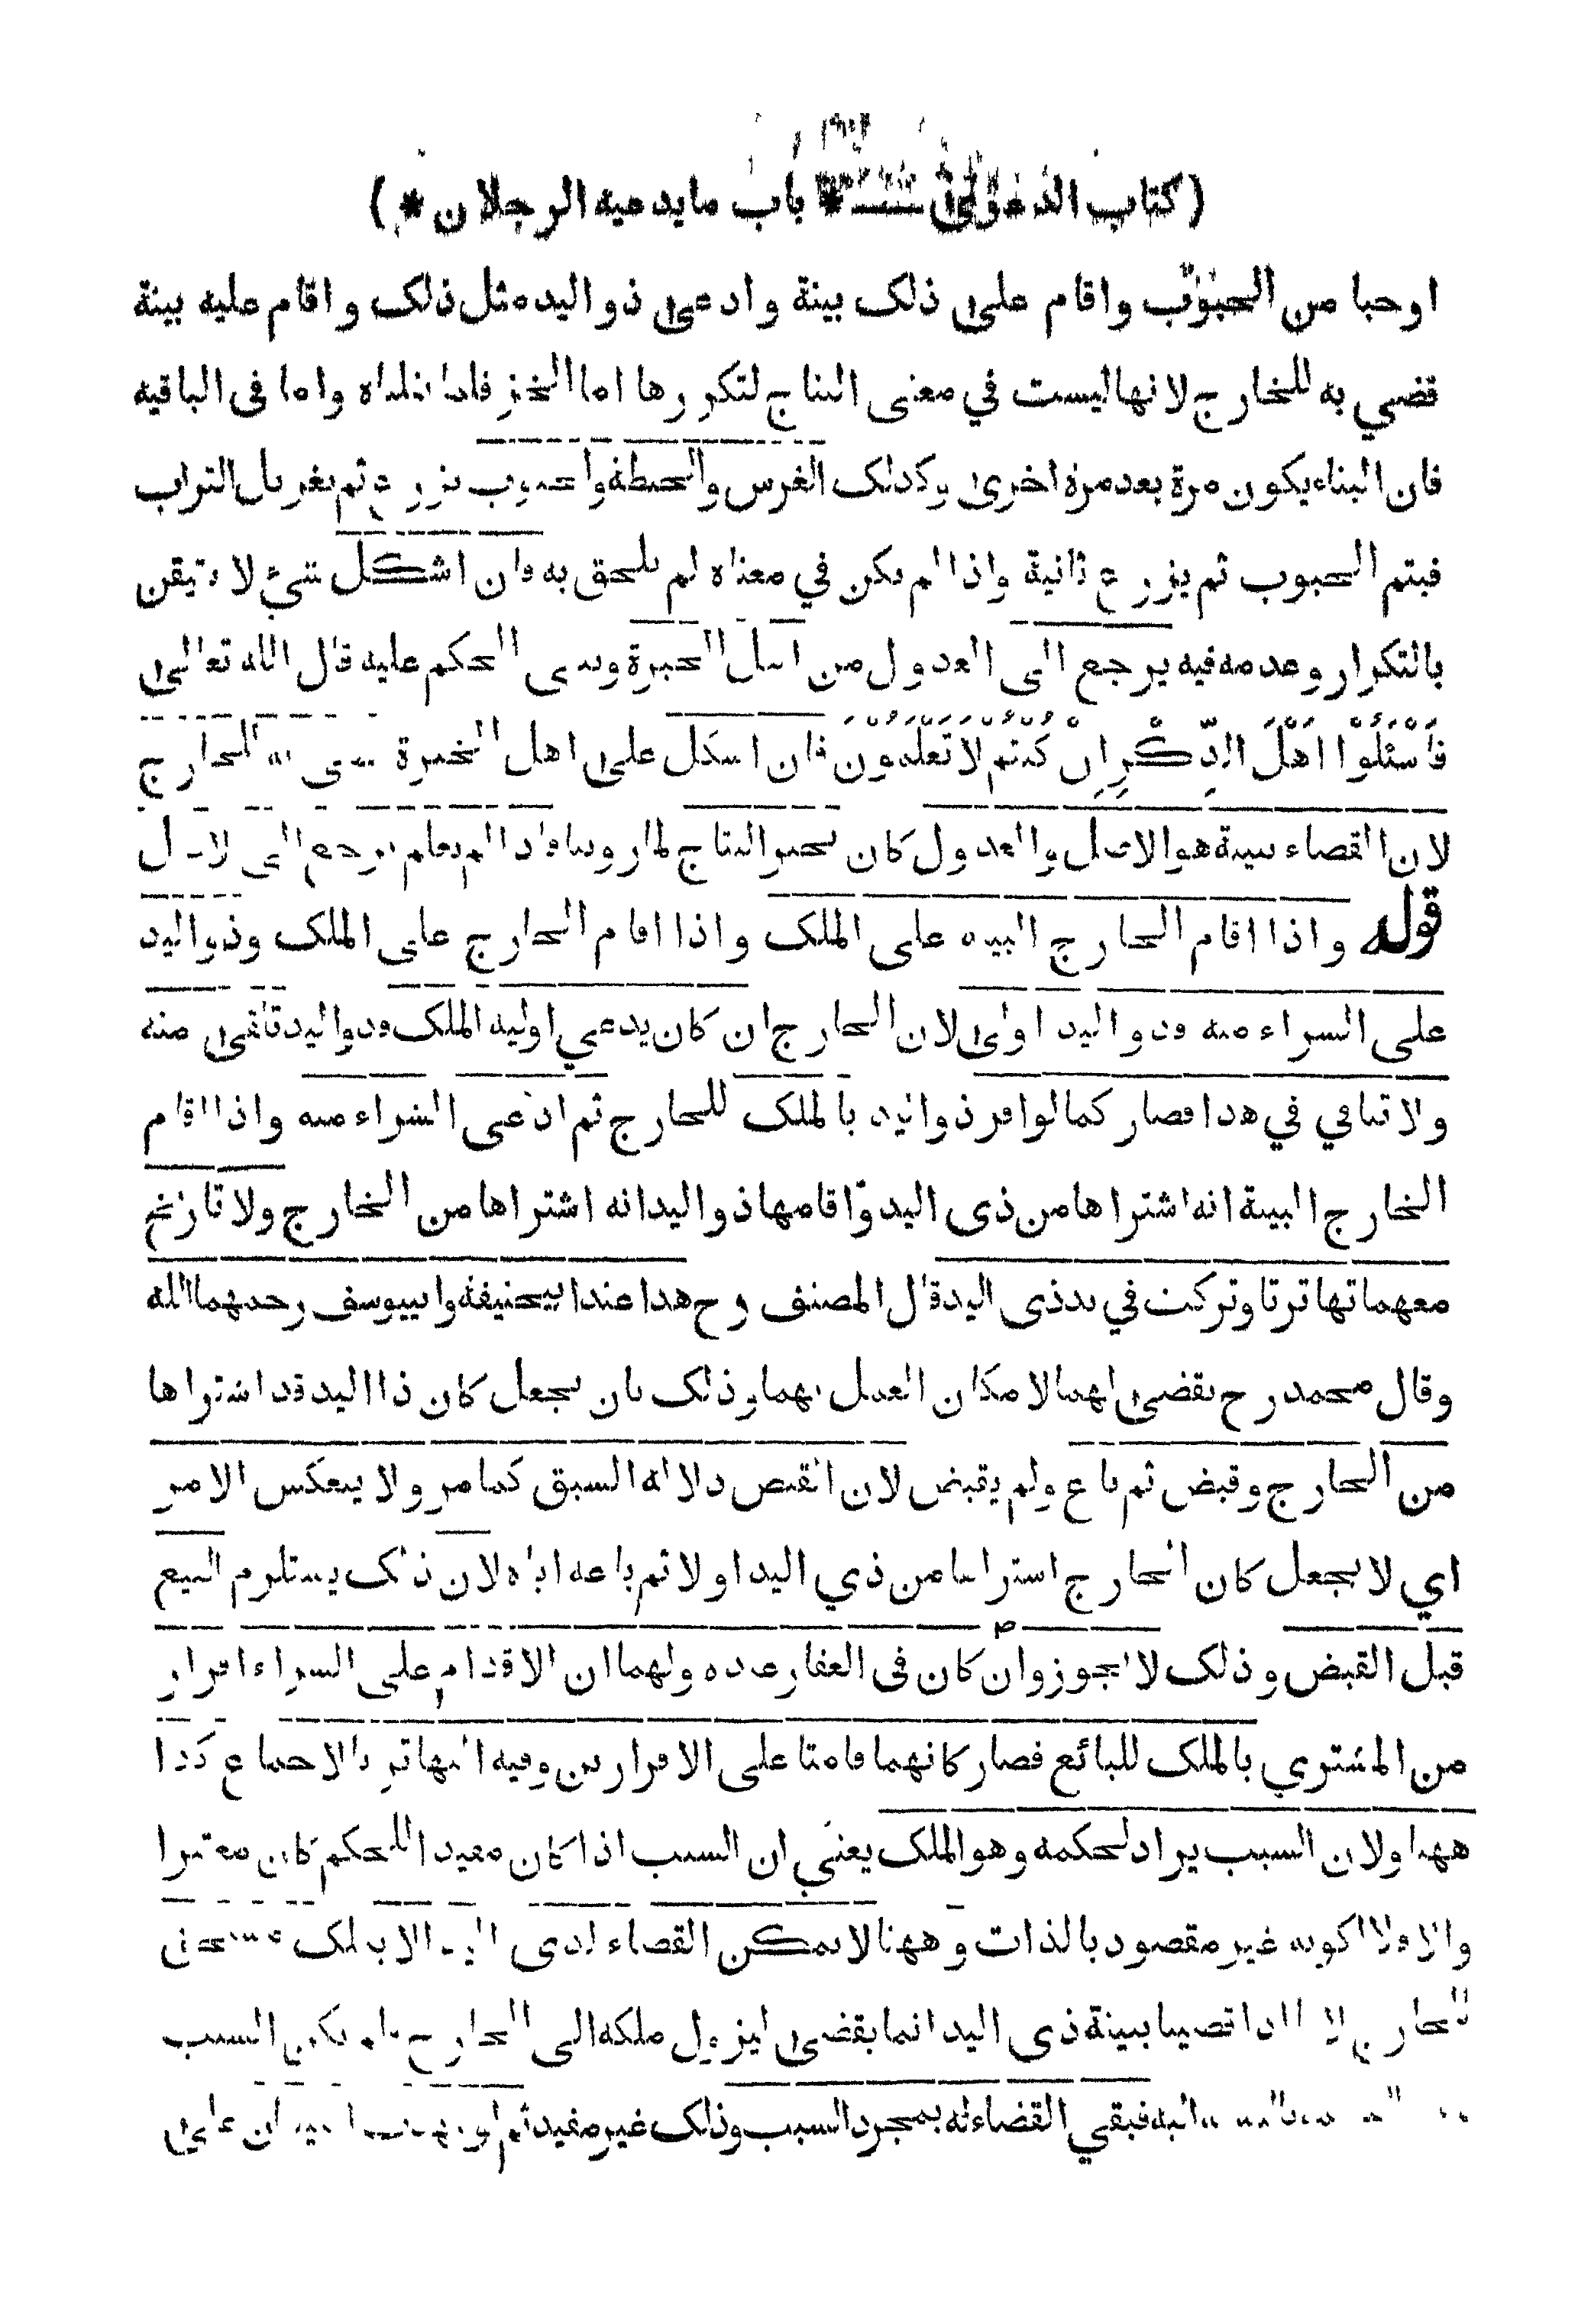 (كتاب الدعوى * باب ما يدعيه الرجلان *)
او حبا من الحبوب واقام على ذلك بينة وادعى ذو اليد مثل ذلك واقام عليه بينة
قضي به للخارج لانها ليست في معنى النتاج لتكررها اما الخز فلما قلناه واما فى الباقيه
فان البناء يكون مرة بعد مرة اخرى وكذلك الغرس والحنطة والحبوب يزرع ثم يغربل التراب
فيتم الحبوب ثم يزرع ثانية واذا لم يكن في معناه لم يلحق به وان اشكل شيء لا يتيقن
بالتكرار وعدمه فيه يرجع الى العدول من اهل الخبرة ويبنى الحكم عليه قال الله تعالى
فَاسْئَلُوْا اَهْلَ الذِّكْرِ اِنْ كُنْتُمْ لَا تَعْلَمُوْنَ فان اشكل على اهل الخبرة قضى به للخارج
لان القضاء ببينة هو الاصل والعدول كان بخبر النتاج لما روينا فاذا لم يعلم يرجع الى الاصل
قوله واذا اقام الخارج البينة على الملك واذا اقام الخارج على الملك وذو اليد
على الشراء منه وذو اليد اولى لان الخارج ان كان يدعي اولية الملك وذو اليد تلقى منه
ولا تنافي في هذا فصار كما لو اقر ذو اليد بالملك للخارج ثم ادعى الشراء منه واذا اقام
الخارج البينة انه اشتراها من ذى اليد واقامها ذو اليد انه اشتراها من الخارج ولا تاريخ
معهما تهاترتا وتركت في يد ذى اليد قال المصنف رح هذا عند ابيحنيفة وابييوسف رحمهما الله
وقال محمد رح يقضى لهما لامكان العمل بهما وذلك بان يجعل كان ذا اليد قد اشتراها
من الخارج وقبض ثم باع ولم يقبض لان القبض دلالة السبق كما مر ولا ينعكس الامر
اي لا يجعل كان الخارج اشتراها من ذي اليد اولا ثم باعه اياه لان ذلك يستلزم البيع
قبل القبض وذلك لا يجوز وان كان فى العقار عنده ولهما ان الاقدام على الشراء اقرار
من المشتري بالملك للبائع فصار كانهما قامتا على الاقرارين وفيه التهاتر بالاجماع كذا
ههنا ولان السبب يراد لحكمه وهو الملك يعني ان السبب اذا كان مفيدا للحكم كان معتبرا
والا فلا لكونه غير مقصود بالذات وههنا لا يمكن القضاء لذى اليد الا بملك مستحق
للخارج لانا اذا قضينا ببينة ذى اليد انما يقضى ليزول ملكه الى الخارج فلم يكن السبب
فبقي القضاء له بمجرد السبب وذلك غير مفيد ثم لو على